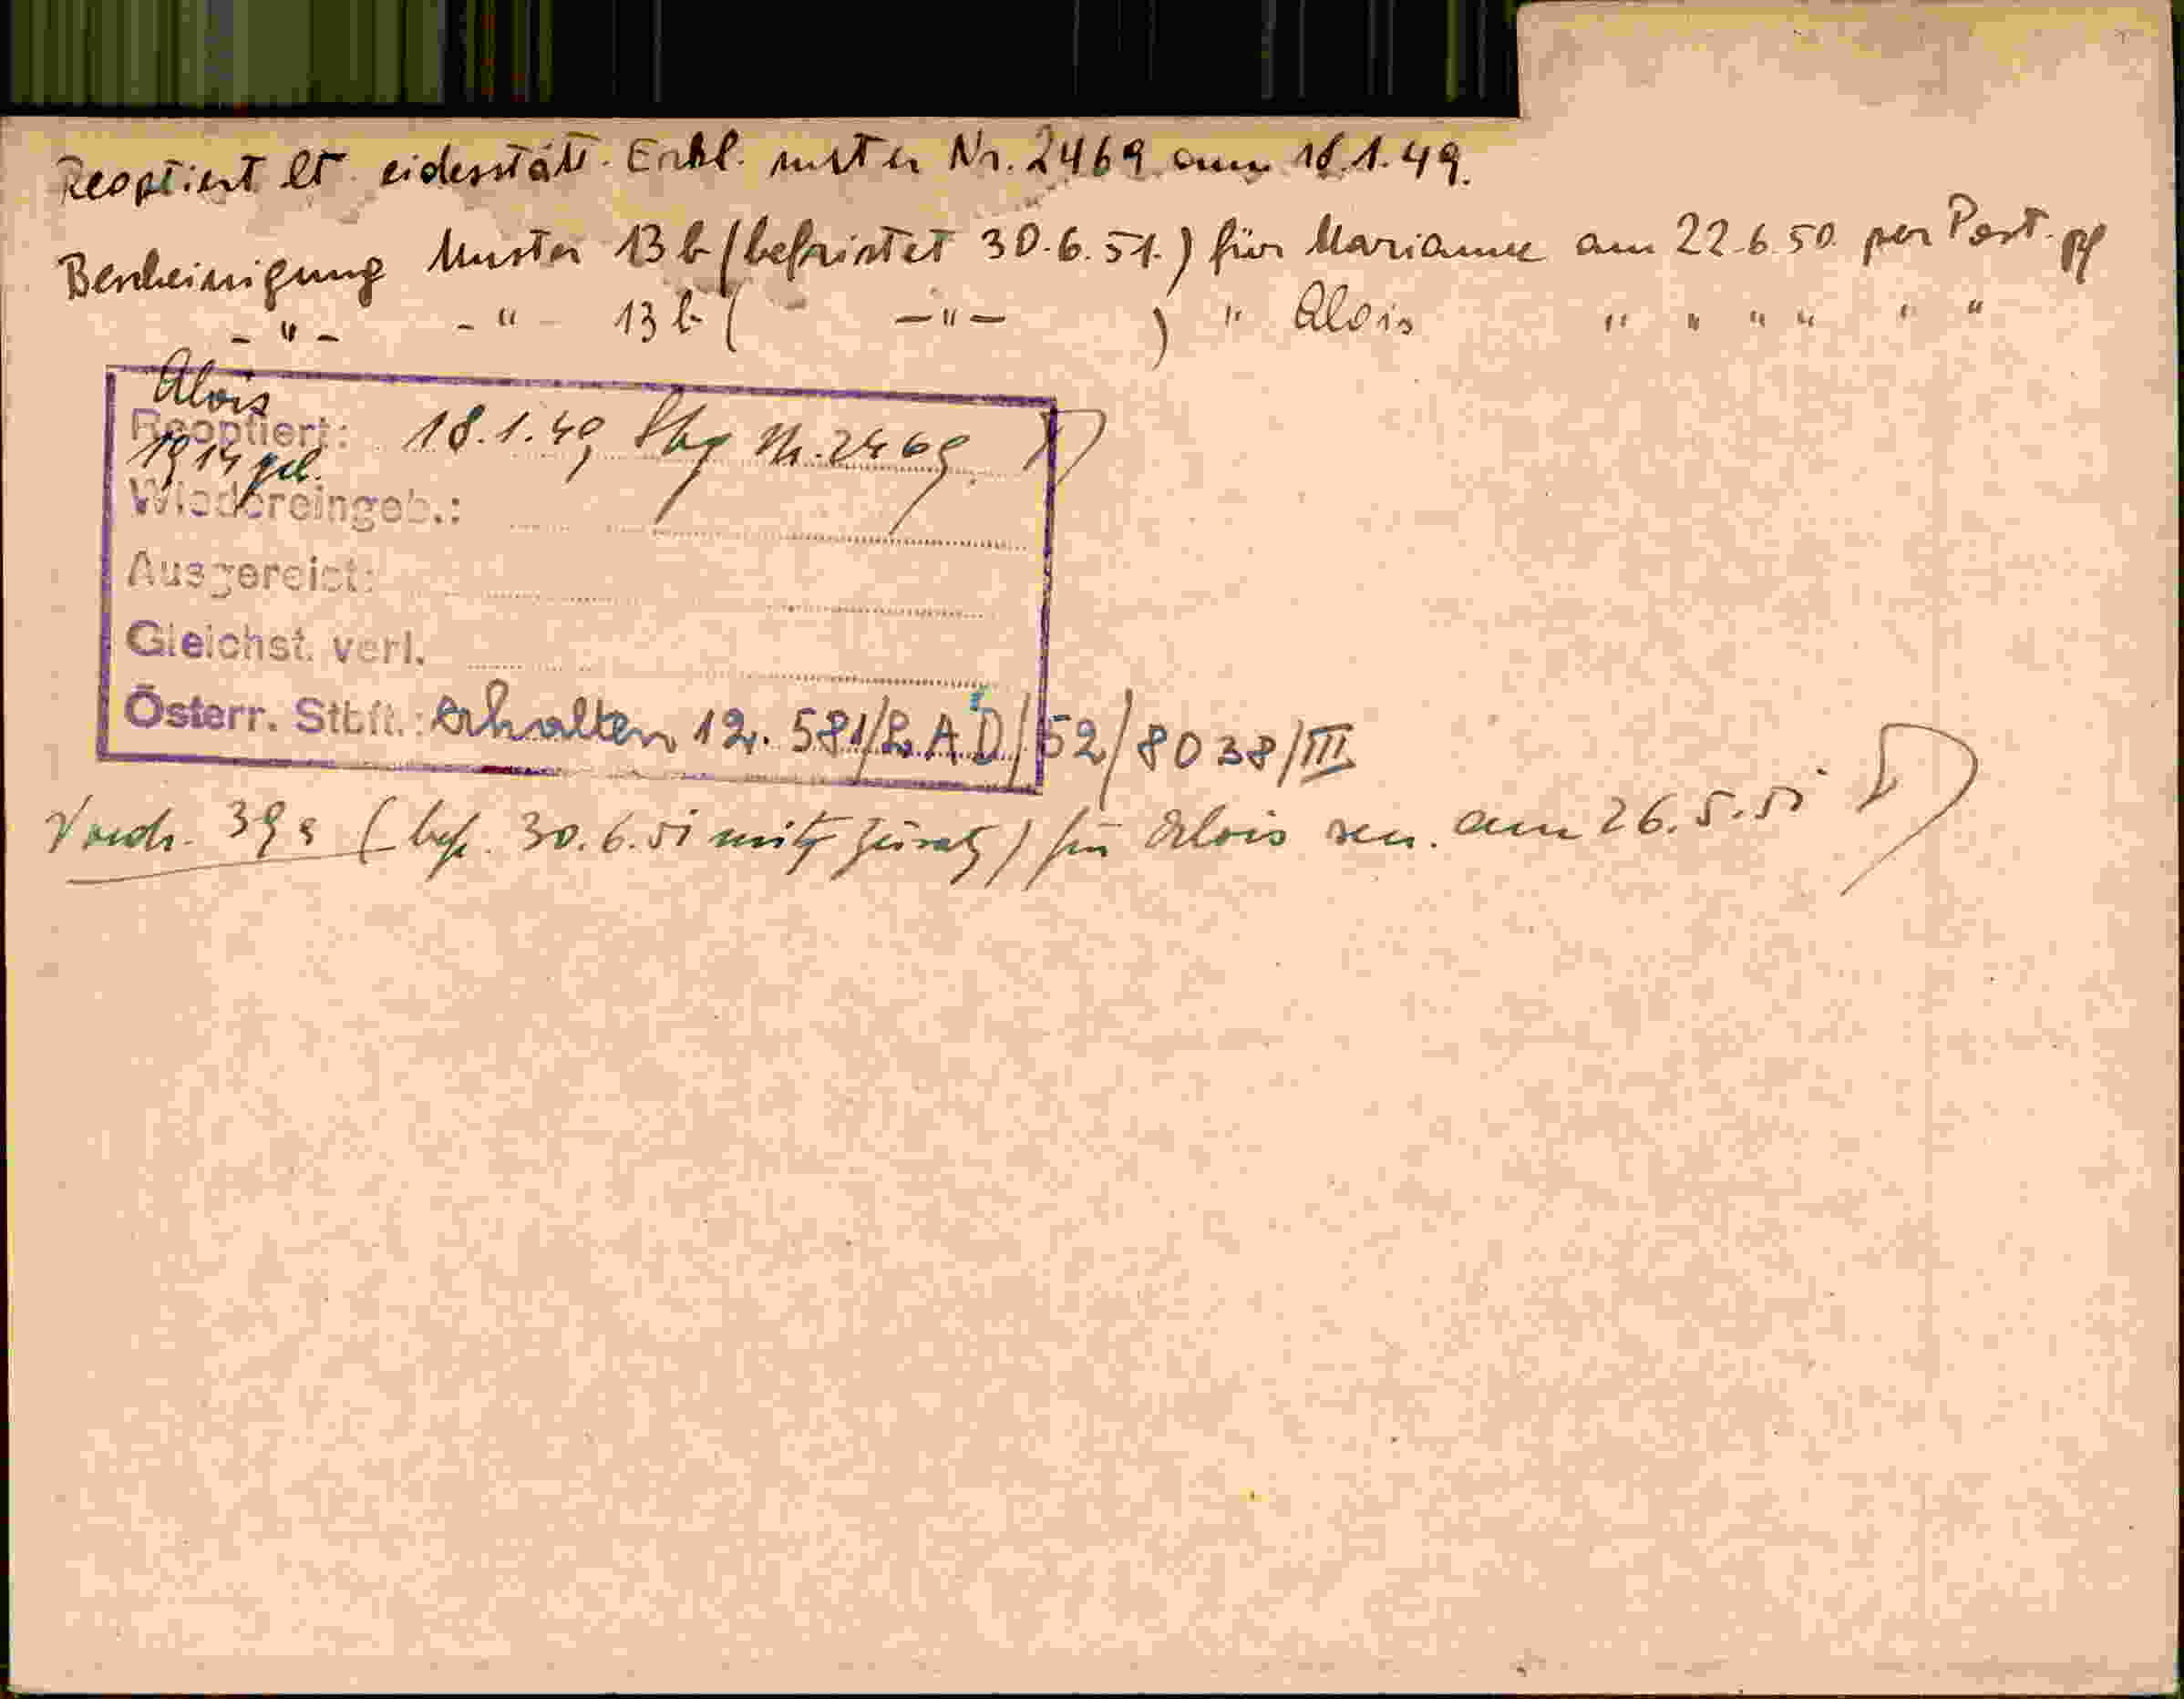 Reoptiert lt. eidesstátt. Erkl. unter Nr. 2469 am 18.1.49.
Bescheinigung Muster 13b (befristet 30.6.51.) für Marianne am 22.6.50 per Post.
-"- -"- 13b ( -"- ) " Alois " " " " " "
Alois
Reoptiert: 18.1.49 Nr. 2469.
1914 geb.
Wiedereingeb.:
Ausgereist:
Gleichst. verl.
Österr. Stbft.: erhalten 12. 581/LAD/52/8038/III
Vordr. 39a (bef. 30.6.51 mit Zusatz) für Alois sen. am 26.5.51